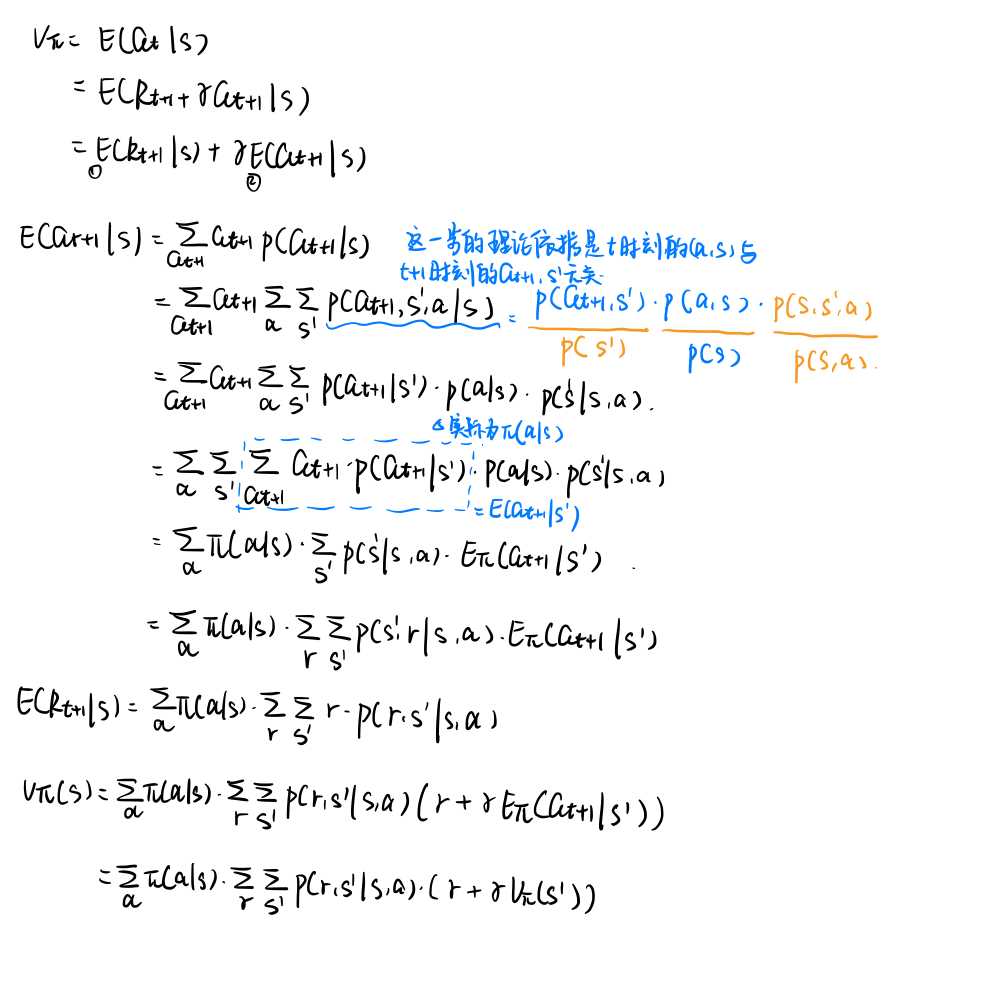 Vπ = E(Gt|s)
= E(Rt+1 + γGt+1|s)
= E(Rt+1|s) + γE(Gt+1|s)
① ②
E(Gt+1|s) = ∑Gt+1 Gt+1 p(Gt+1|s) 这一步的理论依据是t时刻的(a,s)与
t+1时刻的Gt+1, s'无关
= ∑Gt+1 Gt+1 ∑a ∑s' p(Gt+1, s', a|s) = p(Gt+1, s')/p(s') · p(a,s)/p(s) · p(s,s',a)/p(s,a).
= ∑Gt+1 Gt+1 ∑a ∑s' p(Gt+1|s') · p(a|s) · p(s'|s,a).
实际为π(a|s)
= ∑a ∑s' ∑Gt+1 Gt+1 · p(Gt+1|s') · p(a|s) · p(s'|s,a)
= E(Gt+1|s')
= ∑a π(a|s) · ∑s' p(s'|s,a) · Eπ(Gt+1|s') .
= ∑a π(a|s) · ∑r ∑s' p(s',r|s,a) · Eπ(Gt+1|s')
E(Rt+1|s) = ∑a π(a|s) · ∑r ∑s' r · p(r,s'|s,a)
Vπ(s) = ∑a π(a|s) · ∑r ∑s' p(r,s'|s,a) (r + γEπ(Gt+1|s'))
= ∑a π(a|s) · ∑r ∑s' p(r,s'|s,a) · (r + γVπ(s'))